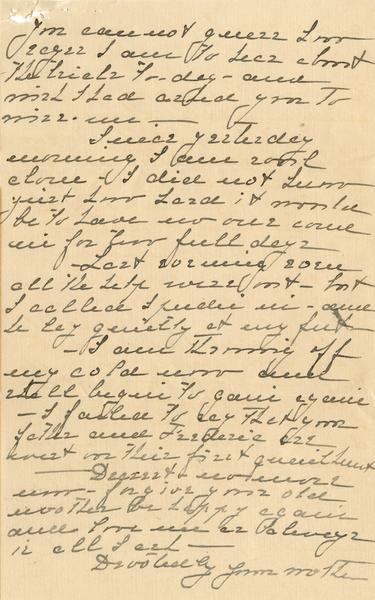 You cannot guess how
eager I am to hear about
the trials to-day - and
wish I had asked you to
wire - me -
Since yesterday
morning I am
alone - I did not know
just how hard it would
be to have no one come
in for two full days
- Last evening even
all the help were out - but
I called Spudie in - and
he lay quietly at my feet
- I am throwing off
my cold now and
shall begin to gain again
- I failed to say that your
father and Frederic are
over on their first quail hunt
- Dearest - no more
now - forgive your old
mother be happy again
and love me as always
is all I ask -
Devotedly your mother